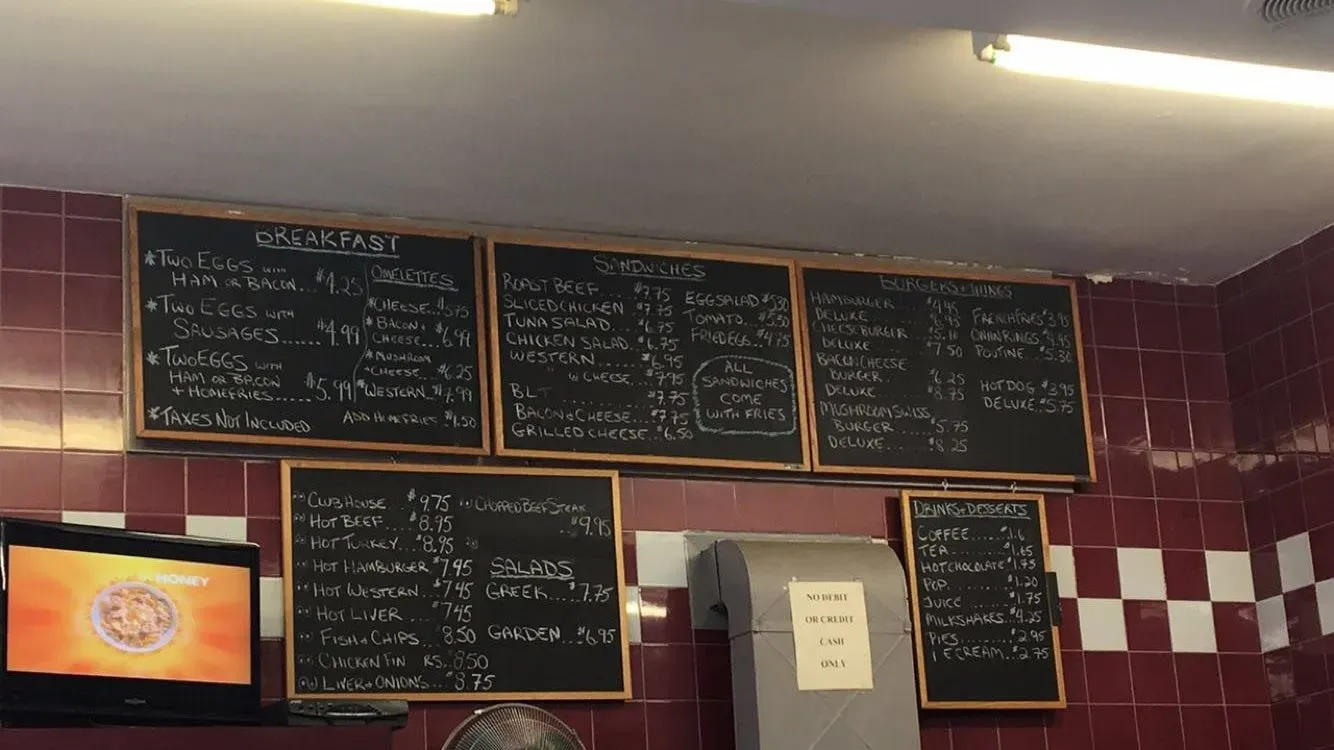 BREAKFAST
*TWO EGGS WITH
HAM OR BACON...$4.25
*TWO EGGS WITH
SAUSAGES......$4.99
*TWO EGGS WITH
HAM OR BACON
+HOMEFRIES......$5.99
*TAXES NOT INCLUDED
OMELETTES
*CHEESE...$5.75
*BACON+
CHEESE...$6.99
*MUSHROOM
+CHEESE...$6.25
*WESTERN..$7.99
ADD HOMEFRIES $1.50
SANDWICHES
ROAST BEEF....$7.75
SLICED CHICKEN.$7.75
TUNA SALAD....$6.75
CHICKEN SALAD..$6.75
WESTERN......$6.95
" W CHEESE...$7.95
BLT............$7.75
BACON+CHEESE...$7.75
GRILLED CHEESE..$6.50
EGG SALAD $5.30
TOMATO...$5.50
FRIED EGG..$4.75
ALL
SANDWICHES
COME
WITH FRIES
BURGERS+THINGS
HAMBURGER...$4.95
DELUXE
CHEESEBURGER
DELUXE.....$7.50
BACON CHEESE
BURGER....$6.25
DELUXE....$8.75
MUSHROOM SWISS
BURGER.....$5.75
DELUXE.....$8.25
FRENCH FRIES $3.95
ONION RINGS.$4.95
POUTINE..$5.30
HOT DOG $3.95
DELUXE..$5.75
CLUB HOUSE...$9.75
HOT BEEF....$8.95
HOT TURKEY...$8.95
HOT HAMBURGER $7.95
HOT WESTERN...$7.45
HOT LIVER....$7.45
FISH+CHIPS...8.50
CHICKEN FIN RS..$8.50
LIVER+ONIONS...$8.75
CHOPPED BEEF STEAK
$9.95
SALADS
GREEK......$7.75
GARDEN...$6.95
HONEY
NO DEBIT
OR CREDIT
CASH
ONLY
DRINKS+DESSERTS
COFFEE......$1.6
TEA.........$1.65
HOT CHOCOLATE $1.75
POP.........$1.20
JUICE.......$1.75
MILKSHAKES..$4.25
PIES........$2.95
I E CREAM...$2.75